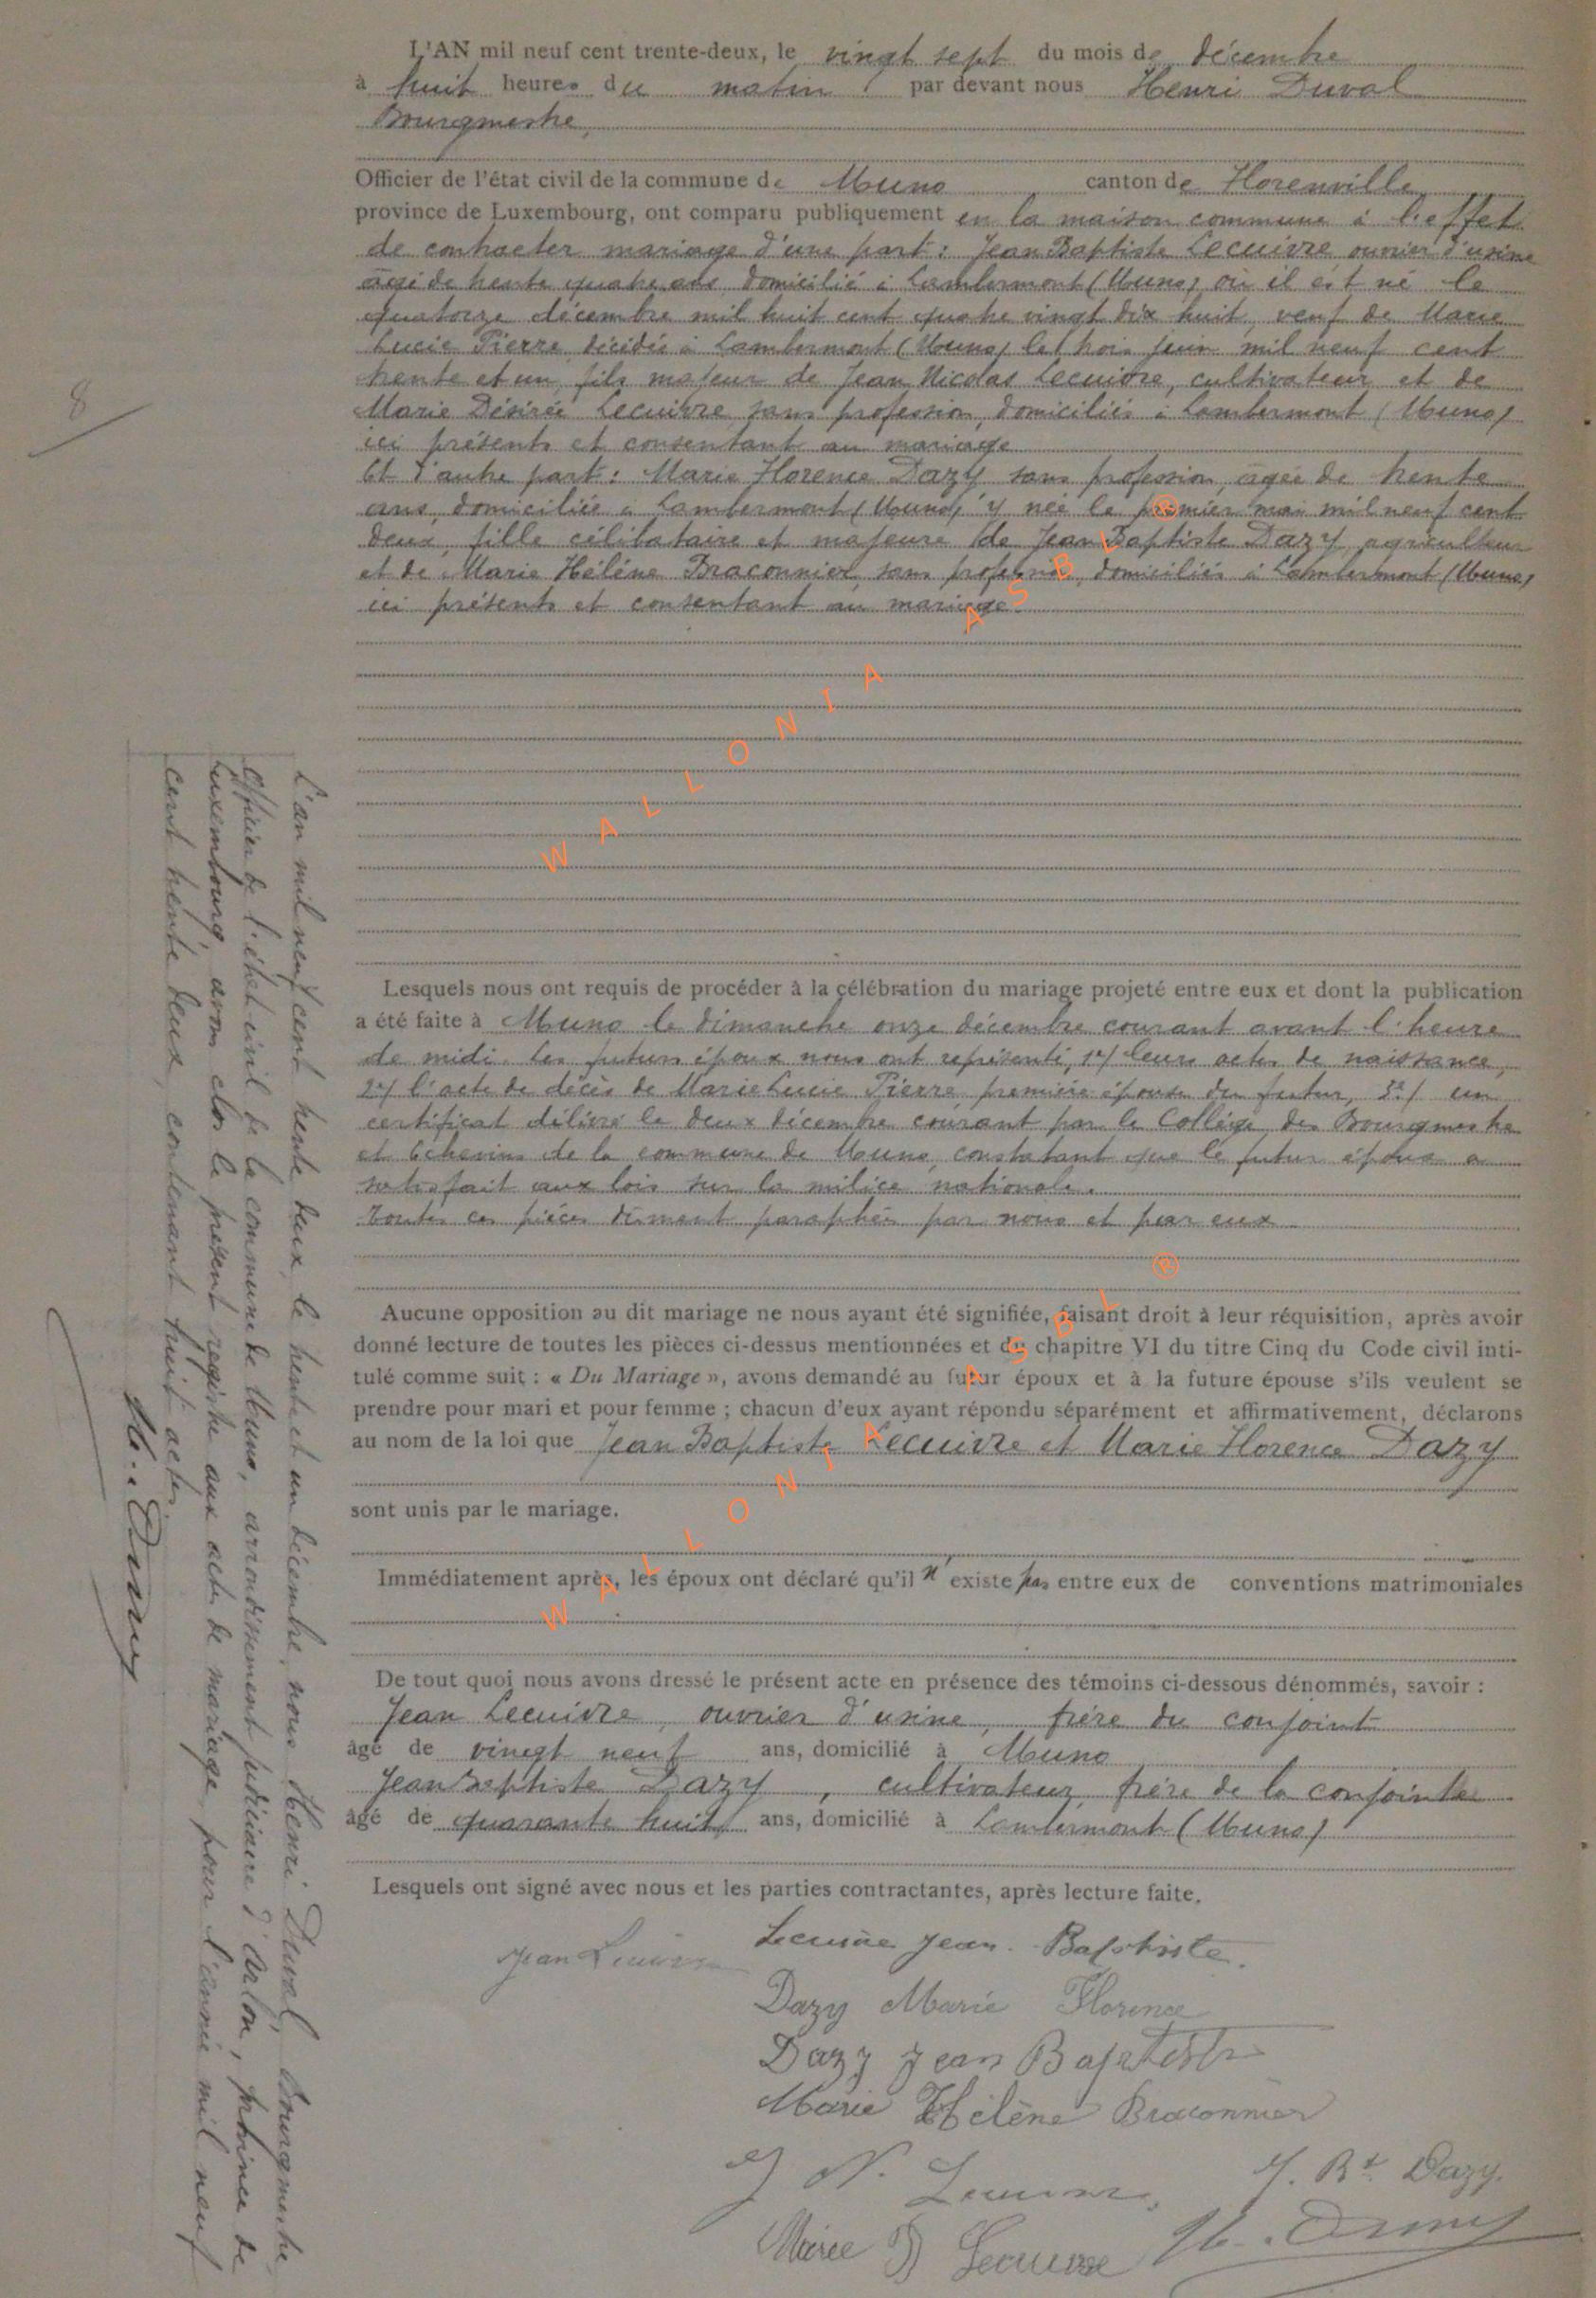 L'AN mil neuf cent trente-deux, le vingt sept du mois de décembre
à huit heures du matin, par devant nous Henri Duval
Bourgmestre,
Officier de l'état civil de la commune de Muno canton de Florenville
province de Luxembourg, ont comparu publiquement en la maison commune à l'effet
de contracter mariage d'une part : Jean Baptiste Lecuivre ouvrier d'usine
âgé de trente quatre ans, domicilié à Lambermont (Muno) où il est né le
quatorze décembre mil huit cent quatre vingt dix huit, veuf de Marie
Lucie Pierre, décédée à Lambermont (Muno) le trois juin mil neuf cent
trente et un, fils majeur de Jean Nicolas Lecuivre, cultivateur et de
Marie Désirée Lecuivre sans profession, domiciliés à Lambermont (Muno)
ici présents et consentant au mariage
Et d'autre part : Marie Florence Dazy sans profession, âgée de trente
ans, domiciliée à Lambermont (Muno) y née le premier mai mil neuf cent
deux, fille célibataire et majeure de Jean Baptiste Dazy agriculteur
et de Marie Hélène Braconnier sans profession, domiciliés à Lambermont (Muno)
ici présents et consentant au mariage.
WALLONIA ASBL ®
8
Lesquels nous ont requis de procéder à la célébration du mariage projeté entre eux et dont la publication
a été faite à Muno le dimanche onze décembre courant avant l'heure
de midi. Les futurs époux nous ont représenté, 1°/ leurs actes de naissance,
2°/ l'acte de décès de Marie Lucie Pierre, première épouse du futur, 3°/ un
certificat délivré le deux décembre courant par le Collège des Bourgmestre
et Echevins de la commune de Muno, constatant que le futur époux a
satisfait aux lois sur la milice nationale.
Toutes ces pièces dûment paraphées par nous et par eux
Aucune opposition au dit mariage ne nous ayant été signifiée, faisant droit à leur réquisition, après avoir
donné lecture de toutes les pièces ci-dessus mentionnées et du chapitre VI du titre Cinq du Code civil inti-
tulé comme suit : « Du Mariage », avons demandé au futur époux et à la future épouse s'ils veulent se
prendre pour mari et pour femme ; chacun d'eux ayant répondu séparément et affirmativement, déclarons
au nom de la loi que Jean Baptiste Lecuivre et Marie Florence Dazy
sont unis par le mariage.
WALLONIA ASBL ®
Immédiatement après, les époux ont déclaré qu'il n'existe pas entre eux de conventions matrimoniales
De tout quoi nous avons dressé le présent acte en présence des témoins ci-dessous dénommés, savoir :
Jean Lecuivre, ouvrier d'usine, frère du conjoint
âgé de vingt neuf ans, domicilié à Muno
Jean Baptiste Dazy, cultivateur, frère de la conjointe
âgé de quarante huit ans, domicilié à Lambermont (Muno)
Lesquels ont signé avec nous et les parties contractantes, après lecture faite.
Lecuivre Jean. Baptiste.
Jean Lecuivre
Dazy Marie Florence
Dazy Jean Baptiste
Marie Hélène Braconnier
J N. Lecuivre
J. Bt. Dazy.
Marie D Lecuivre
H. Duval
L'an mil neuf cent trente deux, le trente et un décembre, nous Henri Duval, Bourgmestre,
Officier de l'état civil de la commune de Muno, arrondissement judiciaire d'Arlon, province de
Luxembourg, avons clos le présent registre aux actes de mariage, pour l'année mil neuf
cent trente deux, contenant huit actes.
H. Duval